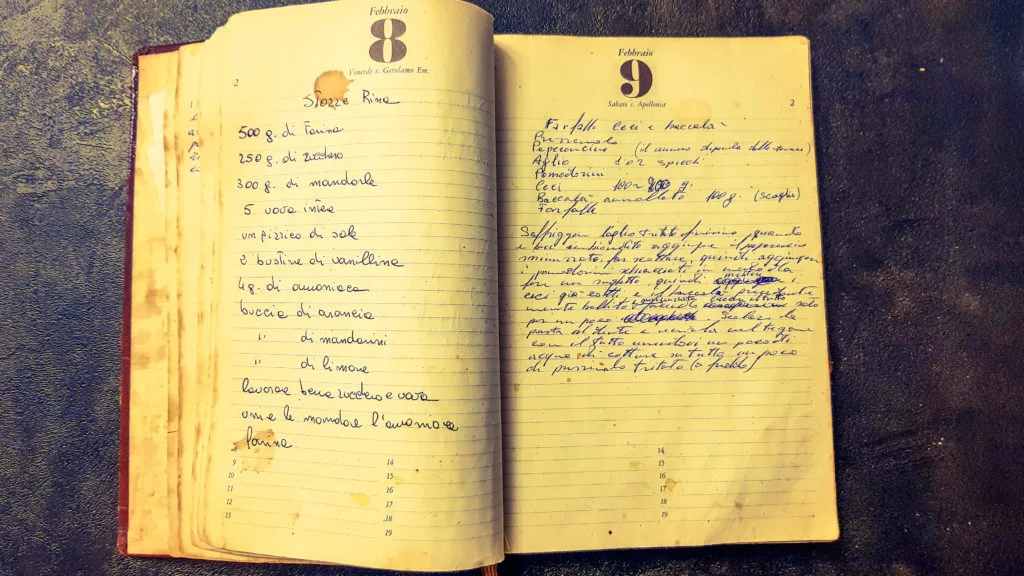 Febbraio
8
Venerdì s. Girolamo Em.
2
Stozze Rina
500 g. di farina
250 g. di zucchero
300 g. di mandorle
5 uova intere
un pizzico di sale
2 bustine di vanillina
4 g. di amoniaca
buccia di arancia
" di mandarini
" di limone
lavorare bene zucchero e uova
unire le mandorle l'amoniaca
farina
8
9 14
10 15
11 16
12 17
13 18
19
Febbraio
9
Sabato s. Apollonia
2
Farfalle Ceci e baccalà
Prezzemolo
Peperoncino (il numero dipende dalle
Aglio 1 o 2 spicchi
Pomodorini
Ceci 100 g.
Baccalà ammollato 100 g. (scaglie)
Farfalle
Soffriggere l'aglio tritato finissimo, quando
è ben aggiungere il peperoncino
quindi aggiungere
i pomodorini schiacciati in modo da
fare un sughetto, quindi mettere i
ceci già cotti
solo
per un poco. Scolare la
pasta al dente e unirla nel tegame
con il tutto unendovi un poco di
acqua di cottura su tutto un poco
di prezzemolo tritato (a freddo)
14
15
16
17
18
19